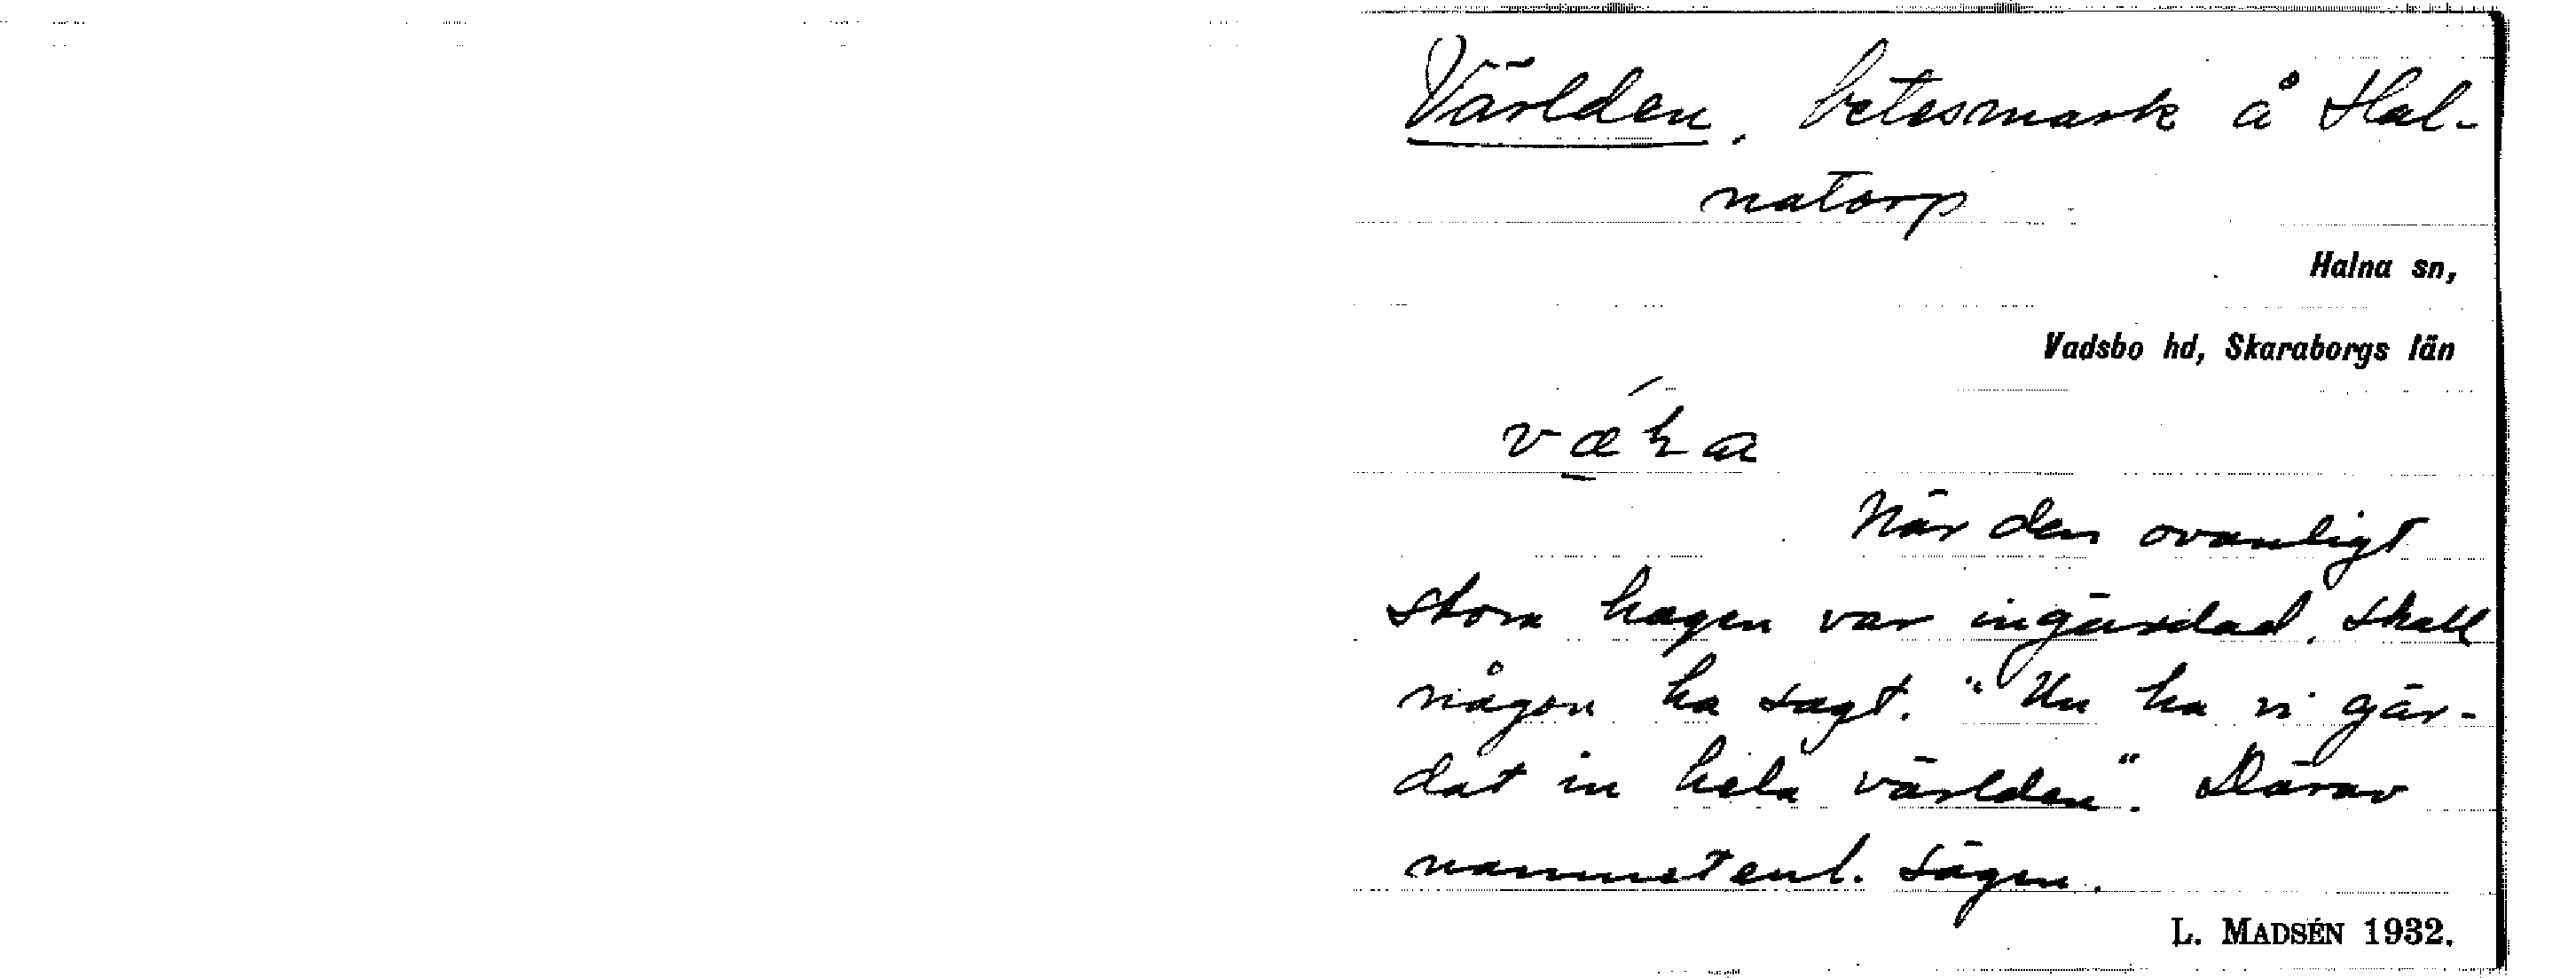 Världen, betesmark å Hal-
natorp
Halna sn,
Vadsbo hd, Skaraborgs län
När den ovanligt
stora hagen var ingärdad, skall
någon ha sagt. "Nu ha vi gär-
dat in hela världen". Därav
namnet enl. sägen.
L. MADSÉN 1932.